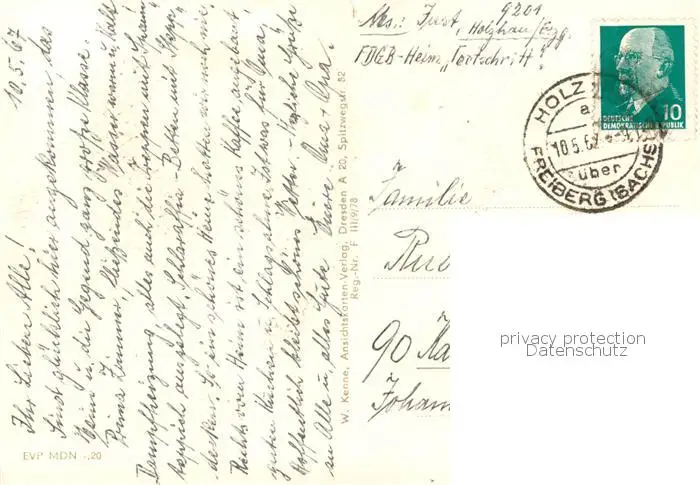 10.5.67
Ihr Lieben Alle!
Sind glücklich hier angekommen, das
Heim u. die Gegend ganz große Klasse.
Prima Zimmer, fließendes Wasser warm u. kalt
Dampfheizung, alles auch die Treppen mit
teppich ausgelegt. Schlaraffia-Betten mit Stepp
decken. So ein schönes Heim hatten wir noch nie.
Rechts vom Heim ist ein schönes Kaffee angebaut,
guten Kuchen u. Schlagsahne, so etwas für Oma.
Hoffentlich bleibt schönes Wetter. Herzliche Grüße
an Alle u. alles Gute Eure Oma + Opa.
EVP MDN -,20
W. Kenne, Ansichtskarten-Verlag, Dresden A 20, Spitzwegstr. 82
Reg.-Nr. F III/9/78
Abs.: Just, 9201
Holzhau/Erzg.
FDGB-Heim "Fortschritt"
HOLZ
über
FREIBERG (SACHS
10
DEUTSCHE
DEMOKRATISCHE REPUBLIK
Familie
90
Johan
privacy protection
Datenschutz